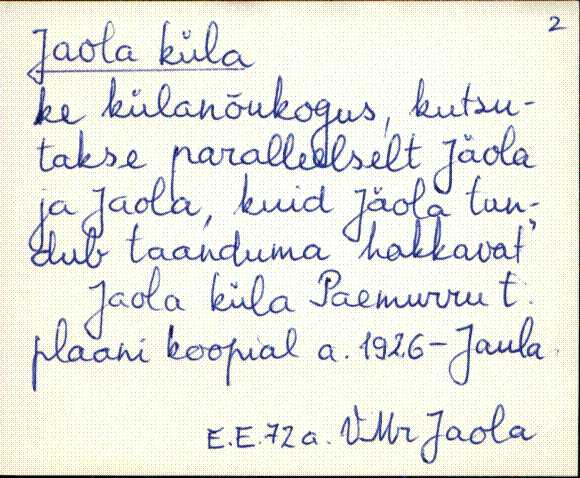 2
Jaola küla
ke külanõukogus, kutsu-
takse paralleelselt Jäola
ja Jaola, kuid Jäola tun-
dub taanduma hakkavat"
Jaola küla Paemurru t.
plaani koopial a. 1926 - Jaula.
E.E. 72 a. VMr Jaola